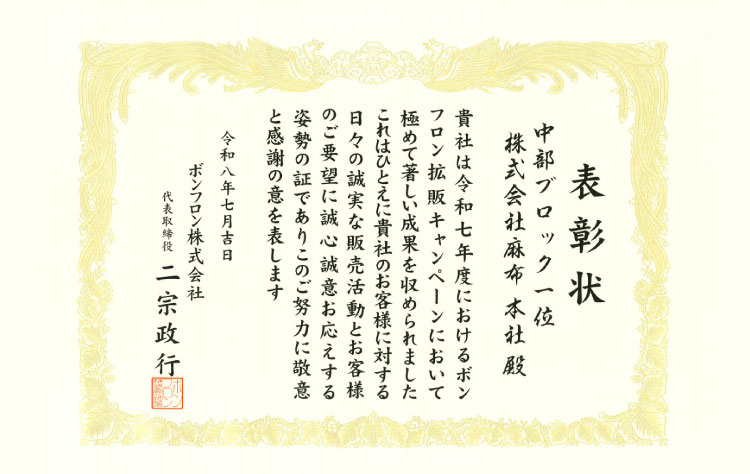 表彰状
中部ブロック一位
株式会社麻布 本社 殿
貴社は令和七年度におけるボン
フロン拡販キャンペーンにおいて
極めて著しい成果を収められました
これはひとえに貴社のお客様に対する
日々の誠実な販売活動とお客様
のご要望に誠心誠意お応えする
姿勢の証でありこのご努力に敬意
と感謝の意を表します
令和八年七月吉日
ボンフロン株式会社
代表取締役 二宗政行